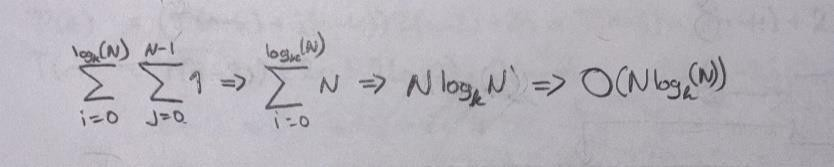 \sum_{i=0}^{\log_k(N)} \sum_{j=0}^{N-1} 1 => \sum_{i=0}^{\log_k(N)} N => N \log_k N => O(N \log_k(N))